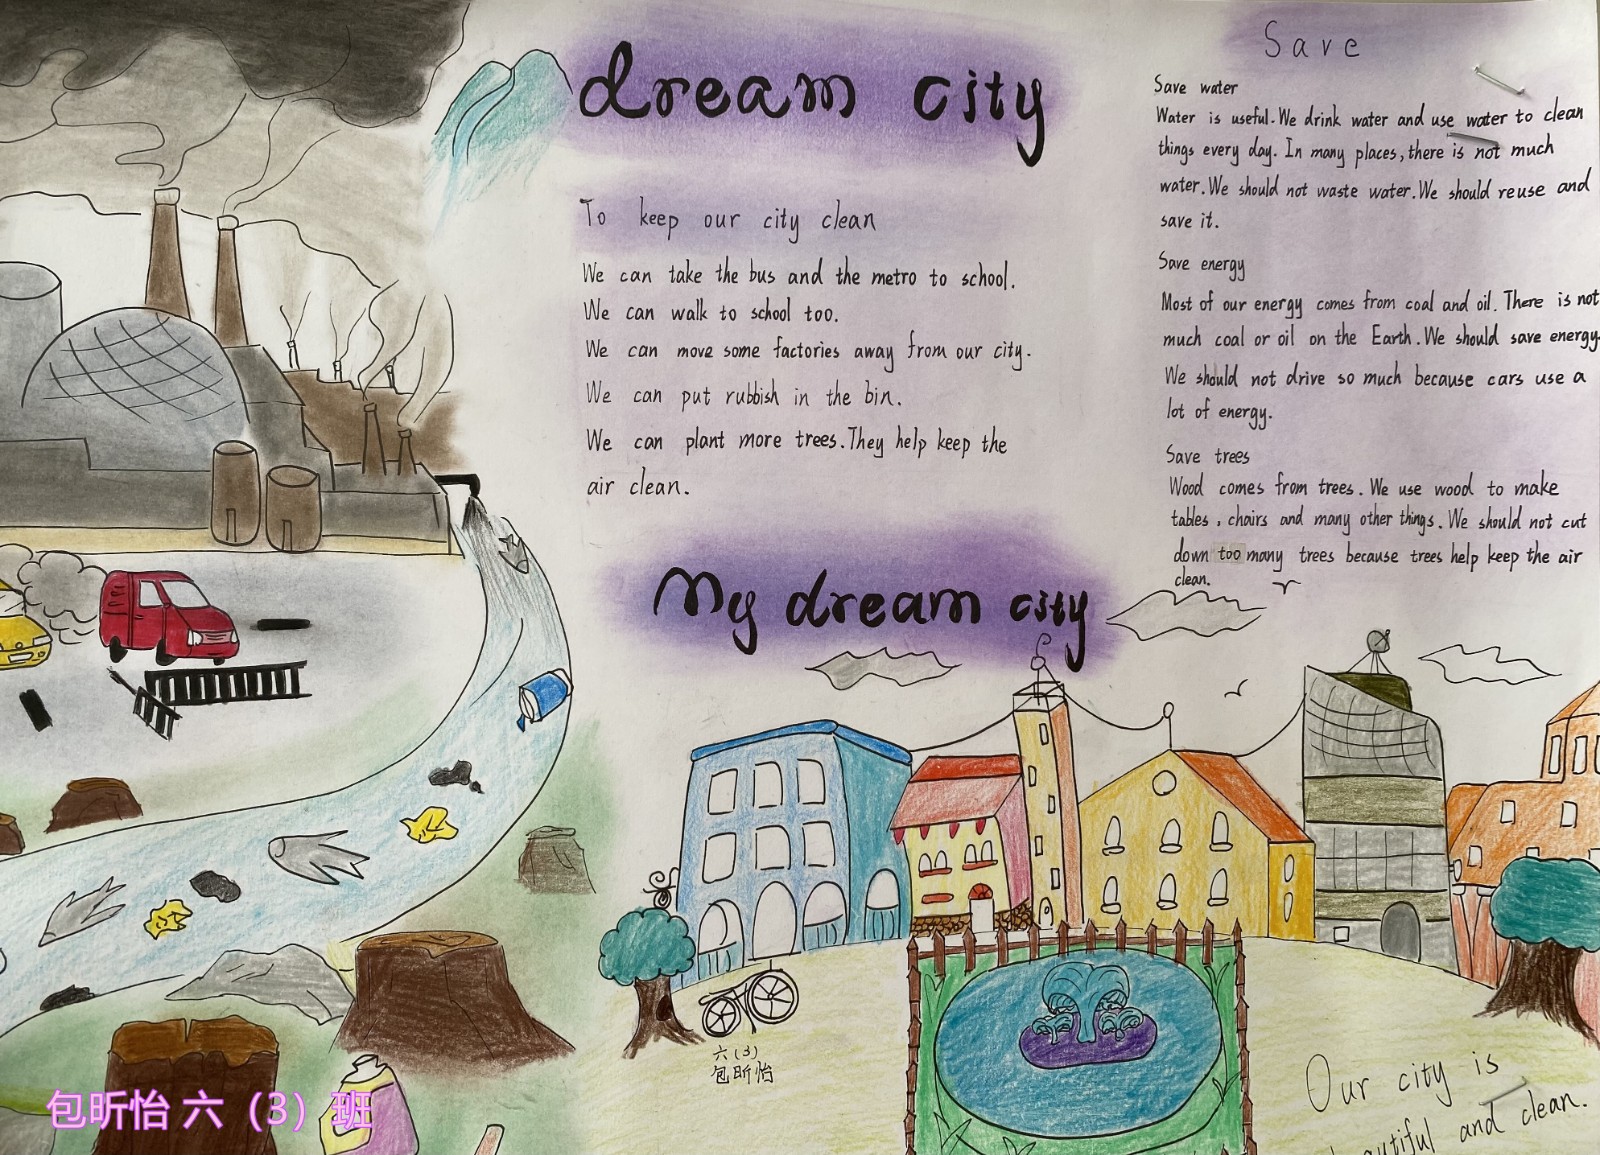 dream city
To keep our city clean
We can take the bus and the metro to school.
We can walk to school too.
We can move some factories away from our city.
We can put rubbish in the bin.
We can plant more trees. They help keep the
air clean.
Save
Save water
Water is useful. We drink water and use water to clean
things every day. In many places, there is not much
water. We should not waste water. We should reuse and
save it.
Save energy
Most of our energy comes from coal and oil. There is not
much coal or oil on the Earth. We should save energy.
We should not drive so much because cars use a
lot of energy.
Save trees
Wood comes from trees. We use wood to make
tables, chairs and many other things. We should not cut
down too many trees because trees help keep the air
clean.
My dream city
六(3)
包昕怡
Our city is
and clean.
包昕怡 六（3）班